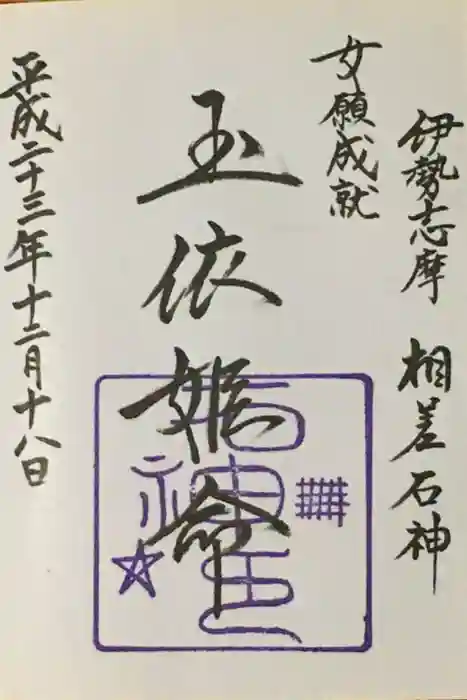 伊勢志摩 相差石神
女願成就
玉依姫命
石神
平成二十三年十二月十八日